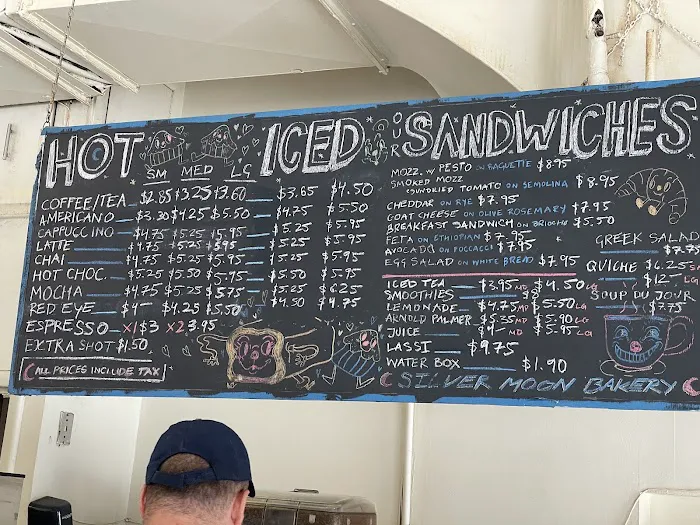 HOT
SM MED LG
ICED
COFFEE/TEA $2.85 $3.25 $3.60 $3.65 $4.50
AMERICANO $3.30 $4.25 $5.50 $4.75 $5.50
CAPPUCCINO $4.75 $5.25 $5.95 $5.25 $5.95
LATTE $4.75 $5.25 $5.95 $5.25 $5.95
CHAI $4.75 $5.25 $5.95 $5.25 $5.95
HOT CHOC. $5.25 $5.50 $5.95 $5.50 $5.95
MOCHA $4.75 $5.25 $5.75 $5.25 $6.25
RED EYE $4 $4.25 $5.50 $4.50 $4.75
ESPRESSO X1 $3 X2 3.95
EXTRA SHOT $1.50
ALL PRICES INCLUDE TAX
OUR SANDWICHES
MOZZ. w PESTO ON BAGUETTE $8.95
SMOKED MOZZ
SUNDRIED TOMATO ON SEMOLINA $8.95
CHEDDAR ON RYE $7.95
GOAT CHEESE ON OLIVE ROSEMARY $7.95
BREAKFAST SANDWICH ON BRIOCHE $5.50
FETA ON ETHIOPIAN $7.95
AVOCADO ON FOCCACCI $7.95
EGG SALAD ON WHITE BREAD $7.95
ICED TEA $3.95 MD $4.50 LG
SMOOTHIES $8
LEMONADE $4.75 MD $5.50 LG
ARNOLD PALMER $5.25 MD $5.90 LG
JUICE MD $5.95 LG
LASSI $9.75
WATER BOX $1.90
GREEK SALAD
$7.75
QUICHE $6.25
$12 LG
SOUP DU JOUR
$7.75
SILVER MOON BAKERY